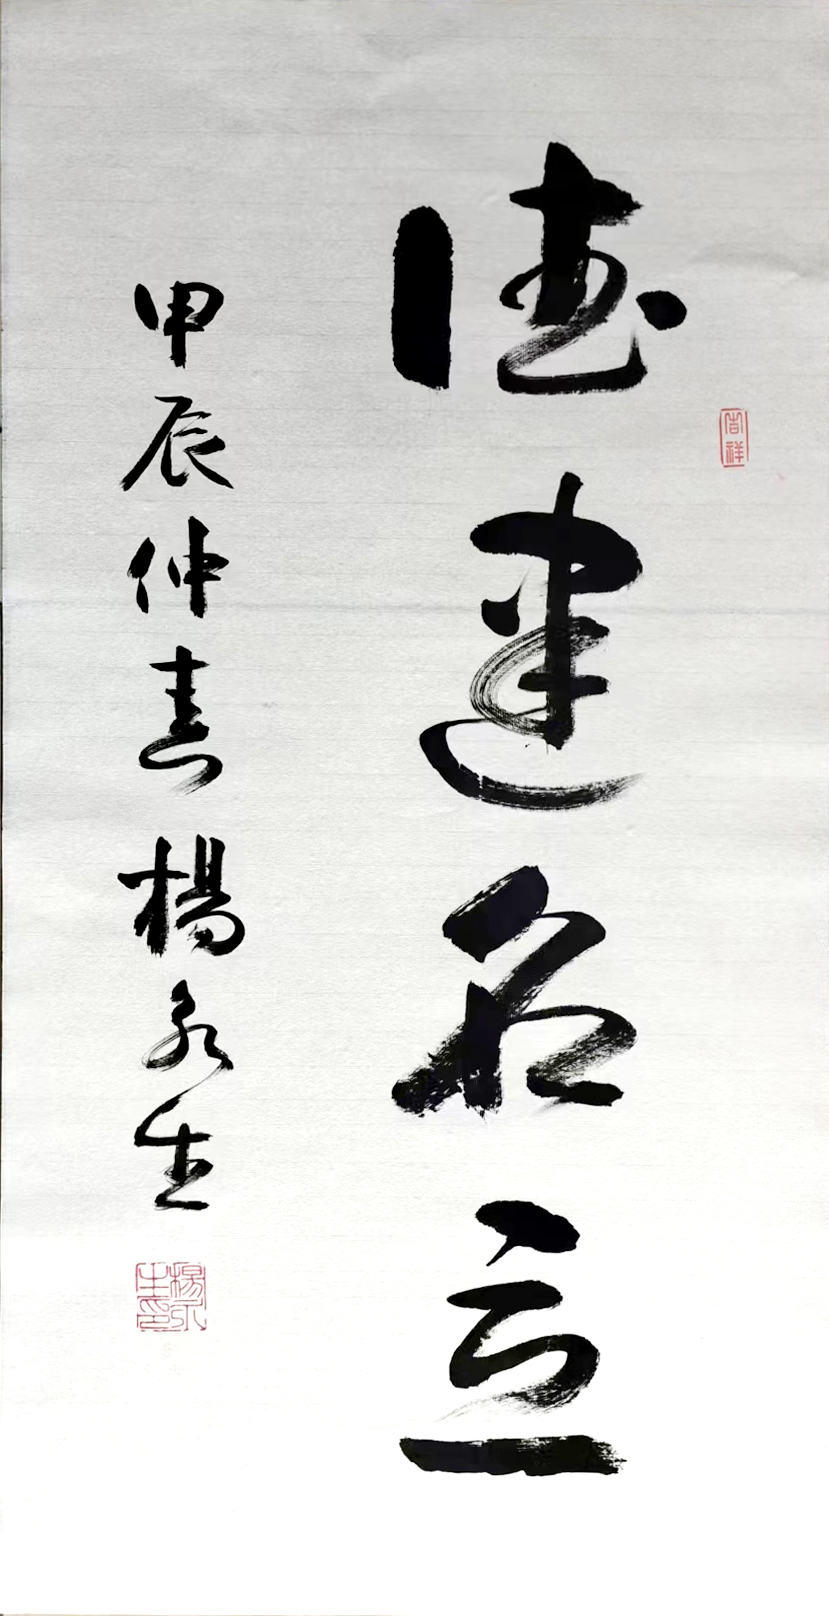 德建名立
吉祥
甲辰仲春楊永生
楊永生印